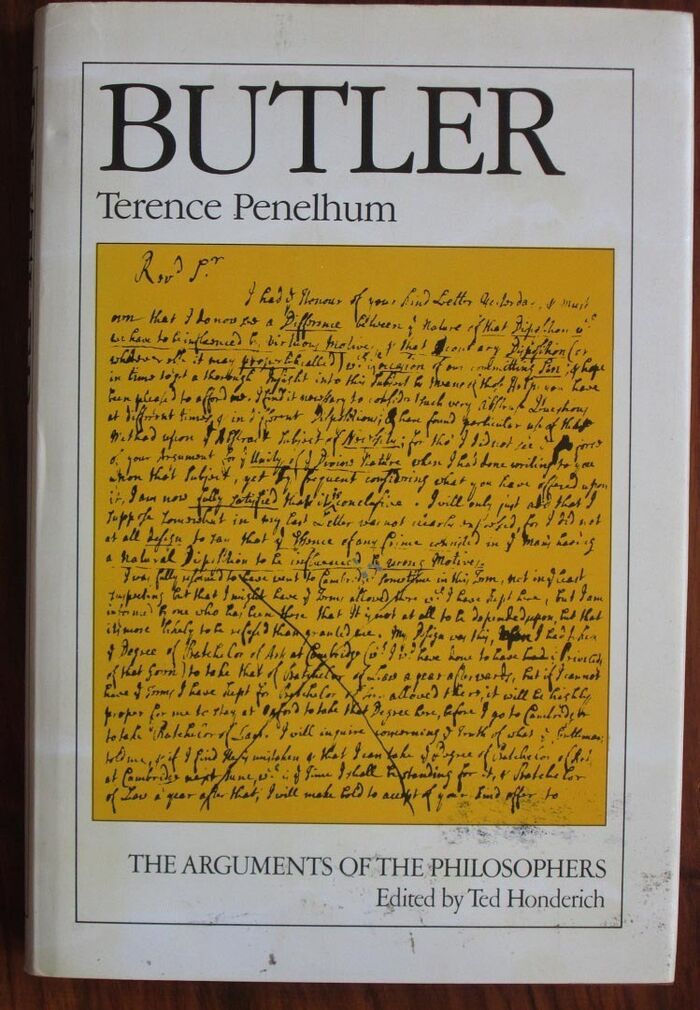 BUTLER
Terence Penelhum
Rev.d S.r
I had ye Honour of your kind Letter Yesterday, & must
own that I do now see a Difference between ye Nature of that Disposition wch
we have to be influenced by virtuous Motives, & that contrary Disposition (or
whatever else it may properly be called) wch is ye occasion of our committing Sin; & hope
in time to get a thorough Insight into this Subject by means of those Helps you have
been pleased to afford me. I find it necessary to consider such very abstruse Questions
at different times & in different Dispositions; & have found particular use of this
Method upon ye abstract Subject of Necessity; for tho' I did not see ye force
of your Argument for ye Unity of ye Divine Nature when I had done writing to you
upon that Subject, yet by frequent considering what you have offered upon
it, I am now fully satisfied that it is conclusive. I will only just add that I
suppose somewhat in my last Letter was not clearly expressed, for I did not
at all design to say that ye Essence of any Crime consisted in ye Man's having
a natural Disposition to be influenced by wrong Motives.
I was fully resolved to have went to Cambridge sometime in this Term, not in ye least
suspecting but that I might have ye Terms allowed there wch I have kept here, but I am
informed by one who has been there that It is not at all to be depended upon, but that
it is more likely to be refused than granted me. My Design was this, when I had taken
ye Degree of Batchelor of Art at Cambridge
of that Gown) to take that of Batchelor of Law a year afterwards, but if I cannot
have ye Terms I have kept for Batchelor of Law allowed there, it will be highly
proper for me to stay at Oxford to take that Degree here, before I go to Cambridge
to take Batchelor of Law. I will inquire concerning ye Truth of what ye Gentleman
told me, & if I find He is mistaken & that I can take ye Degree of Batchelor of Art
at Cambridge next June, wch is ye Time I shall be standing for it, & Batchelor
of Law a year after that, I will make bold to accept of your kind offer to
THE ARGUMENTS OF THE PHILOSOPHERS
Edited by Ted Honderich